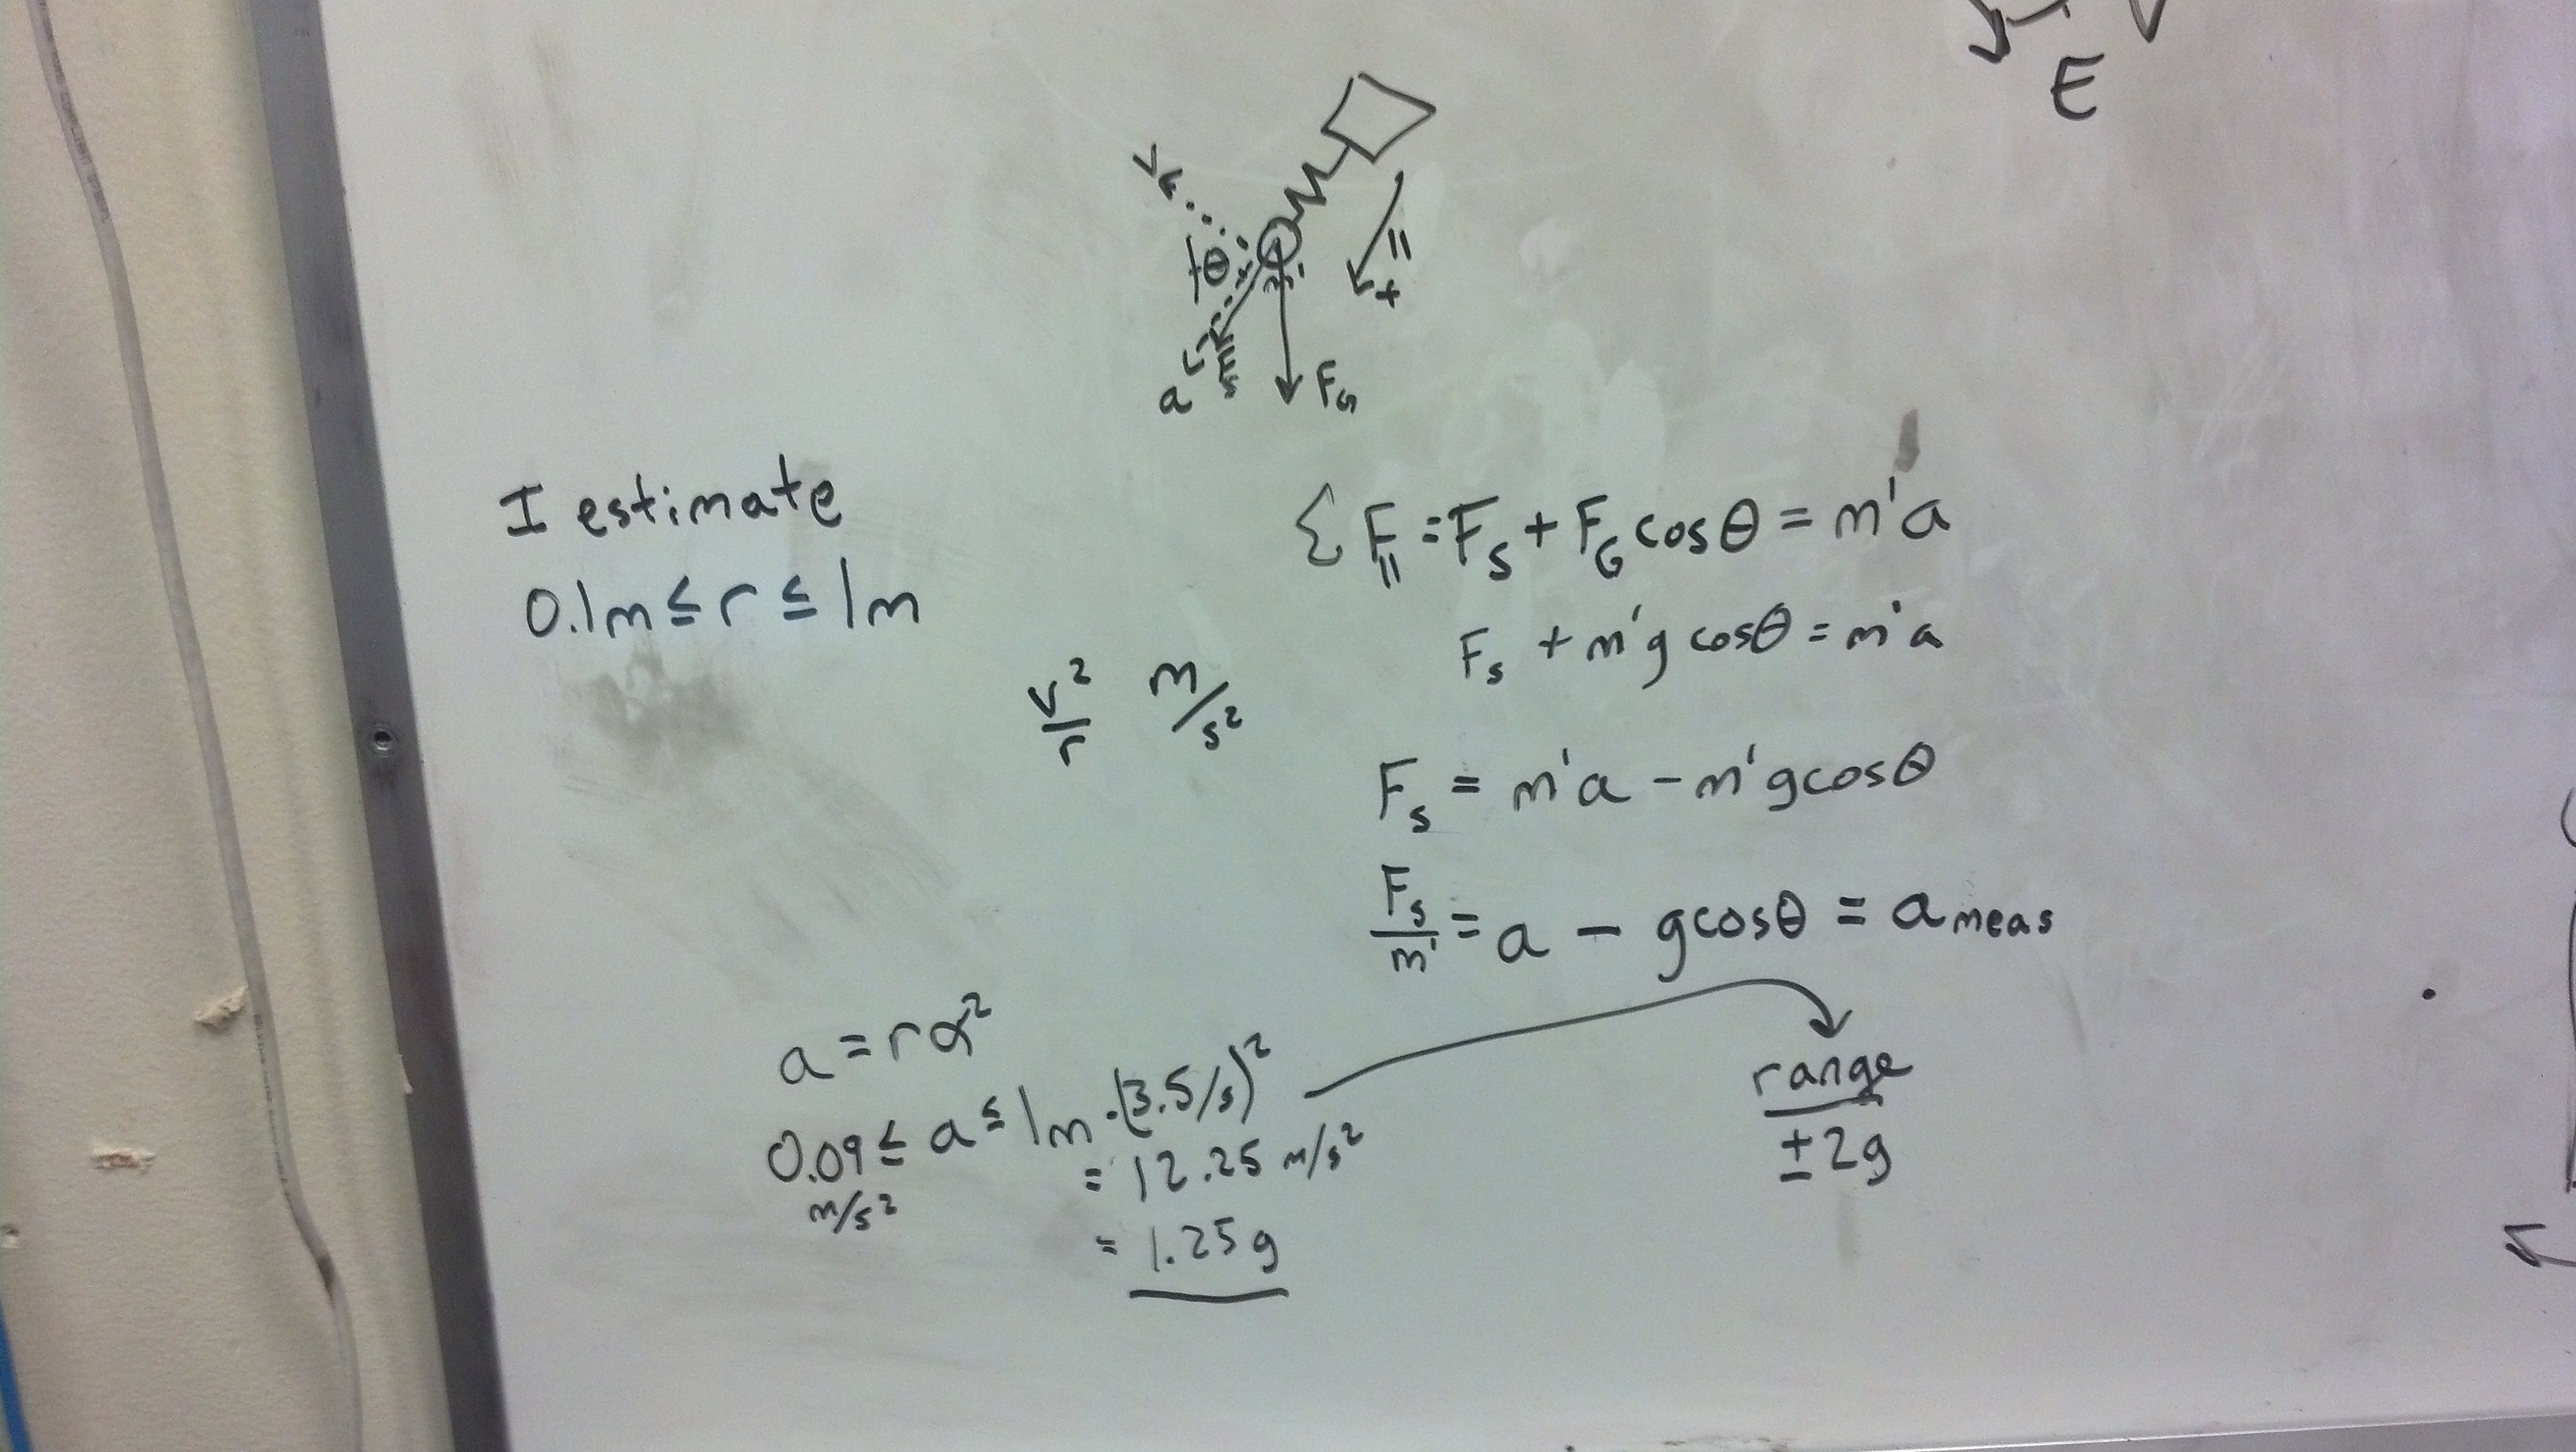 E
θ
m'
a
F_s
F_G
||
+
I estimate
0.1m ≤ r ≤ 1m
Σ F_|| = F_s + F_G cosθ = m'a
F_s + m'g cosθ = m'a
v²/r m/s²
F_s = m'a - m'g cosθ
F_s/m' = a - g cosθ = a_meas
a = rα²
0.09 ≤ a ≤ 1m · (3.5/s)²
m/s²
= 12.25 m/s²
= 1.25g
range
±2g